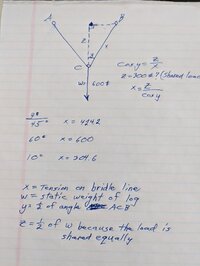 A
B
z
y
x
C
W=600#
Cos y = z/x
z=300#? (Shared load)
x = z/cos y
45° x = 424.2
60° x = 600
10° x = 304.6
x = Tension on bridle line
w = static weight of log
y = ½ of angle ACB
z = ½ of w because the load is
shared equally